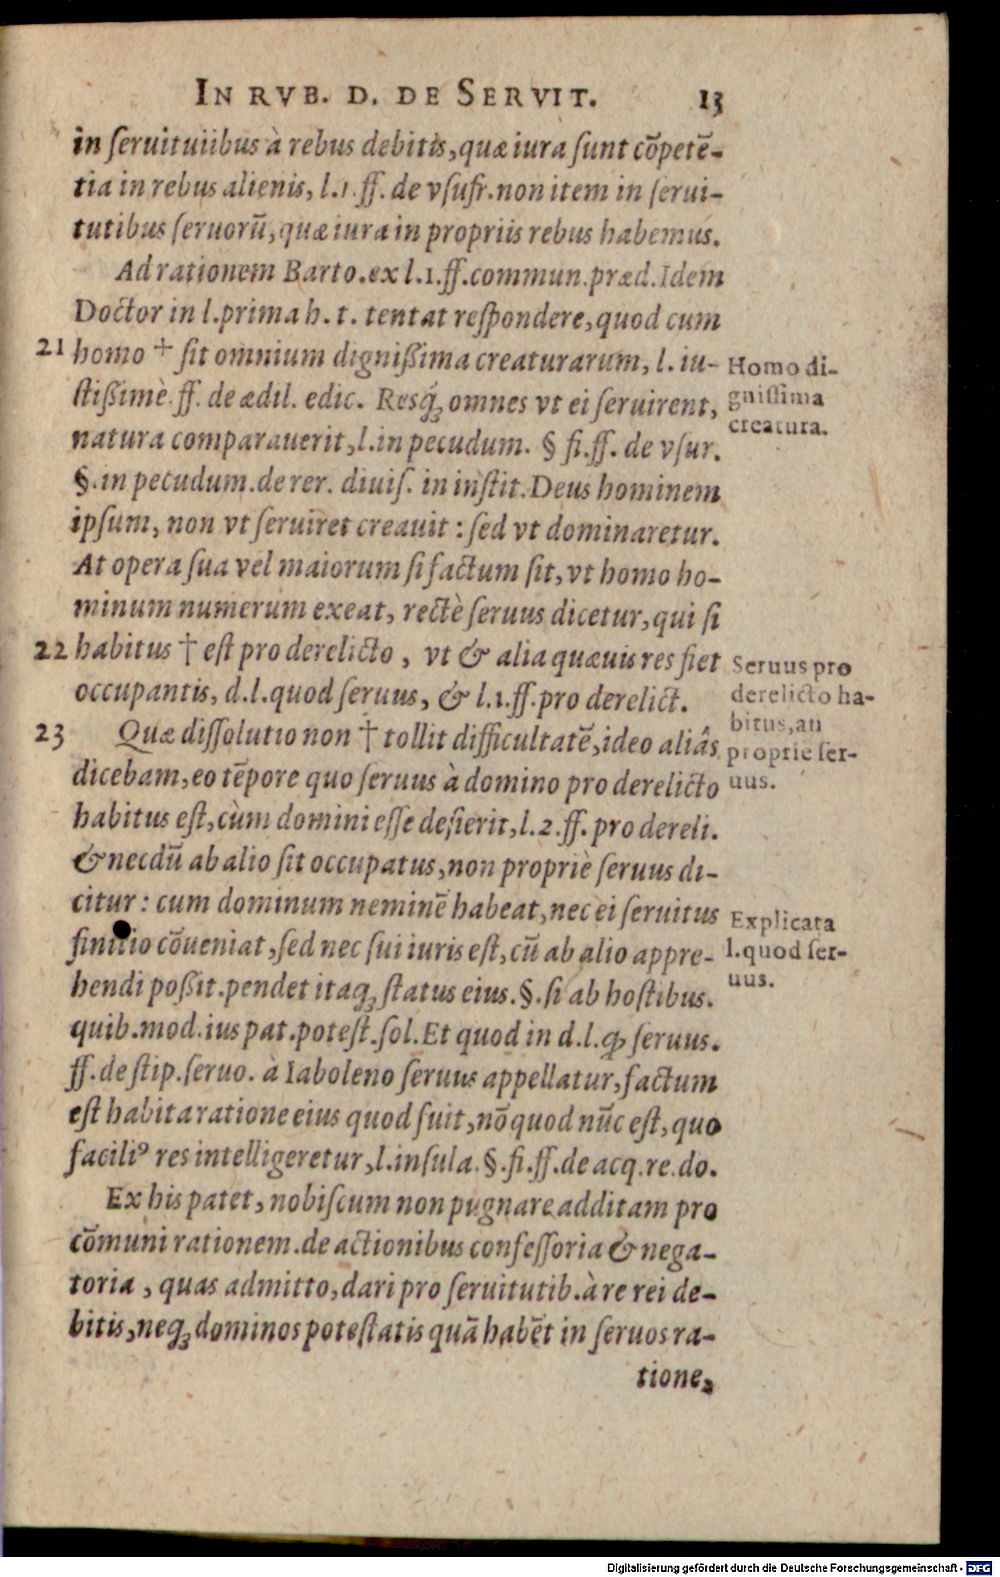 IN RVB. D. DE SERVIT. 13
in seruituiibus à rebus debitis, quæ iura sunt cōpetē-
tia in rebus alienis, l.1. ff. de vsufr. non item in serui-
tutibus seruorū, quæ iura in propriis rebus habemus.
Ad rationem Barto. ex l.1. ff. commun. præd. Idem
Doctor in l. prima h. t. tentat respondere, quod cum
21 homo † sit omnium dignißima creaturarum, l. iu-
stißimè. ff. de ædil. edic. Resq́; omnes vt ei seruirent,
natura comparauerit, l. in pecudum. § fi. ff. de vsur.
§. in pecudum. de rer. diuis. in instit. Deus hominem
ipsum, non vt seruiret creauit : sed vt dominaretur.
At opera sua vel maiorum si factum sit, vt homo ho-
minum numerum exeat, rectè seruus dicetur, qui si
22 habitus † est pro derelicto, vt & alia quæuis res fiet
occupantis, d. l. quod seruus, & l.1. ff. pro derelict.
23 Quæ dissolutio non † tollit difficultatē, ideo aliâs
dicebam, eo tēpore quo seruus à domino pro derelicto
habitus est, cùm domini esse desierit, l.2. ff. pro dereli.
& necdū ab alio sit occupatus, non propriè seruus di-
citur : cum dominum neminē habeat, nec ei seruitus
finitio cōueniat, sed nec sui iuris est, cū ab alio appre-
hendi poßit. pendet itaq; status eius. §. si ab hostibus.
quib. mod. ius pat. potest. sol. Et quod in d. l. ꝙ seruus.
ff. de stip. seruo. à Iaboleno seruus appellatur, factum
est habita ratione eius quod fuit, nō quod nūc est, quo
faciliꝰ res intelligeretur, l. insula. §. fi. ff. de acq. re. do.
Ex his patet, nobiscum non pugnare additam pro
cōmuni rationem. de actionibus confessoria & nega-
toria, quas admitto, dari pro seruitutib. à re rei de-
bitis, neq; dominos potestatis quā habēt in seruos ra-
tione,
Homo di-
gnissima
creatura.
Seruus pro
derelicto ha-
bitus, an
proprie ser-
uus.
Explicata
l. quod ser-
uus.
Digitalisierung gefördert durch die Deutsche Forschungsgemeinschaft - DFG